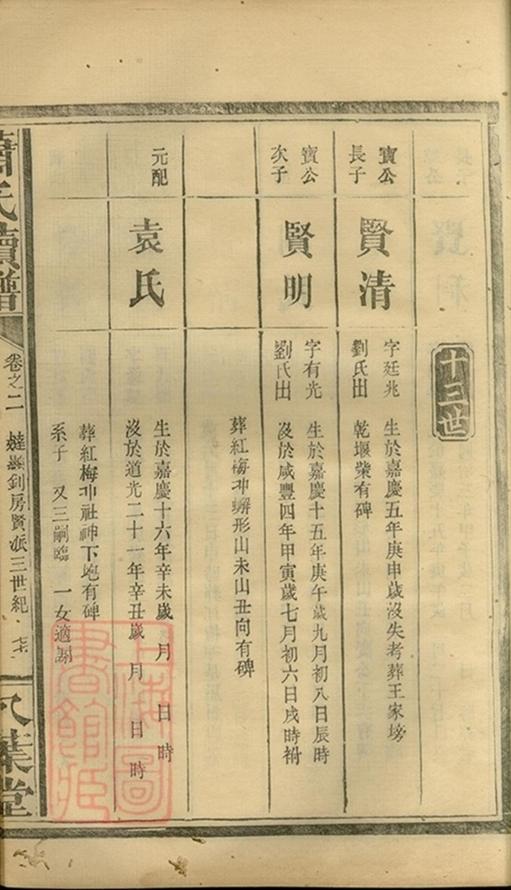 十三世
寶公
長子
賢清
字廷兆
劉氏出
生於嘉慶五年庚申歲沒失考葬王家塝
乾堰柴有碑
寶公
次子
賢明
字有光
劉氏出
生於嘉慶十五年庚午歲九月初八日辰時
沒於咸豐四年甲寅歲七月初六日戌時祔
葬紅梅冲蠏形山未山丑向有碑
元配
袁氏
生於嘉慶十六年辛未歲 月 日 時
沒於道光二十一年辛丑歲 月 日 時
葬紅梅冲社神下塊有碑
系子 又三嗣臨 一女適謝
蕭氏續譜
卷之二
釗房賢派三世紀
八葉堂
上海圖書館藏